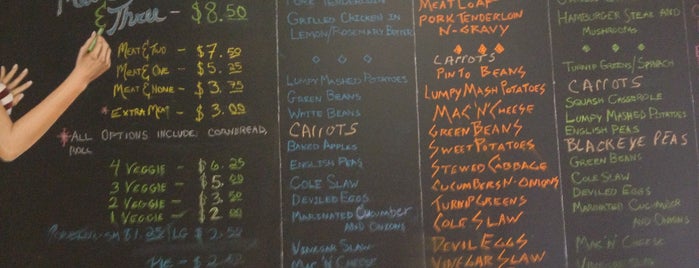 Meat
& Three - $8.50
Meat & Two - $7.50
Meat & One - $5.25
Meat & None - $3.75
*Extra Meat - $3.00
*All options include: cornbread,
roll
4 Veggie - $6.25
3 Veggie - $5.00
2 Veggie - $3.50
1 Veggie - $2.00
$1.25 LG $2.50
Pie -
Pork Tenderloin
Grilled Chicken in
Lemon/Rosemary Butter
Lumpy Mashed Potatoes
Green Beans
White Beans
Carrots
Baked Apples
English Peas
Cole Slaw
Deviled Eggs
Marinated Cucumber
and Onions
Vinegar Slaw
Mac 'N' Cheese
Meatloaf
Pork Tenderloin
N-Gravy
Carrots
Pinto Beans
Lumpy Mash Potatoes
Mac 'N' Cheese
Green Beans
Sweet Potatoes
Stewed Cabbage
Cucumbers-N-Onions
Turnip Greens
Cole Slaw
Devil Eggs
Vinegar Slaw
Hamburger Steak and
Mushrooms
Turnip Greens/Spinach
Carrots
Squash Casserole
Lumpy Mashed Potatoes
English Peas
Blackeye Peas
Green Beans
Cole Slaw
Deviled Eggs
Marinated Cucumber
and Onions
Mac 'N' Cheese
Vinegar Slaw